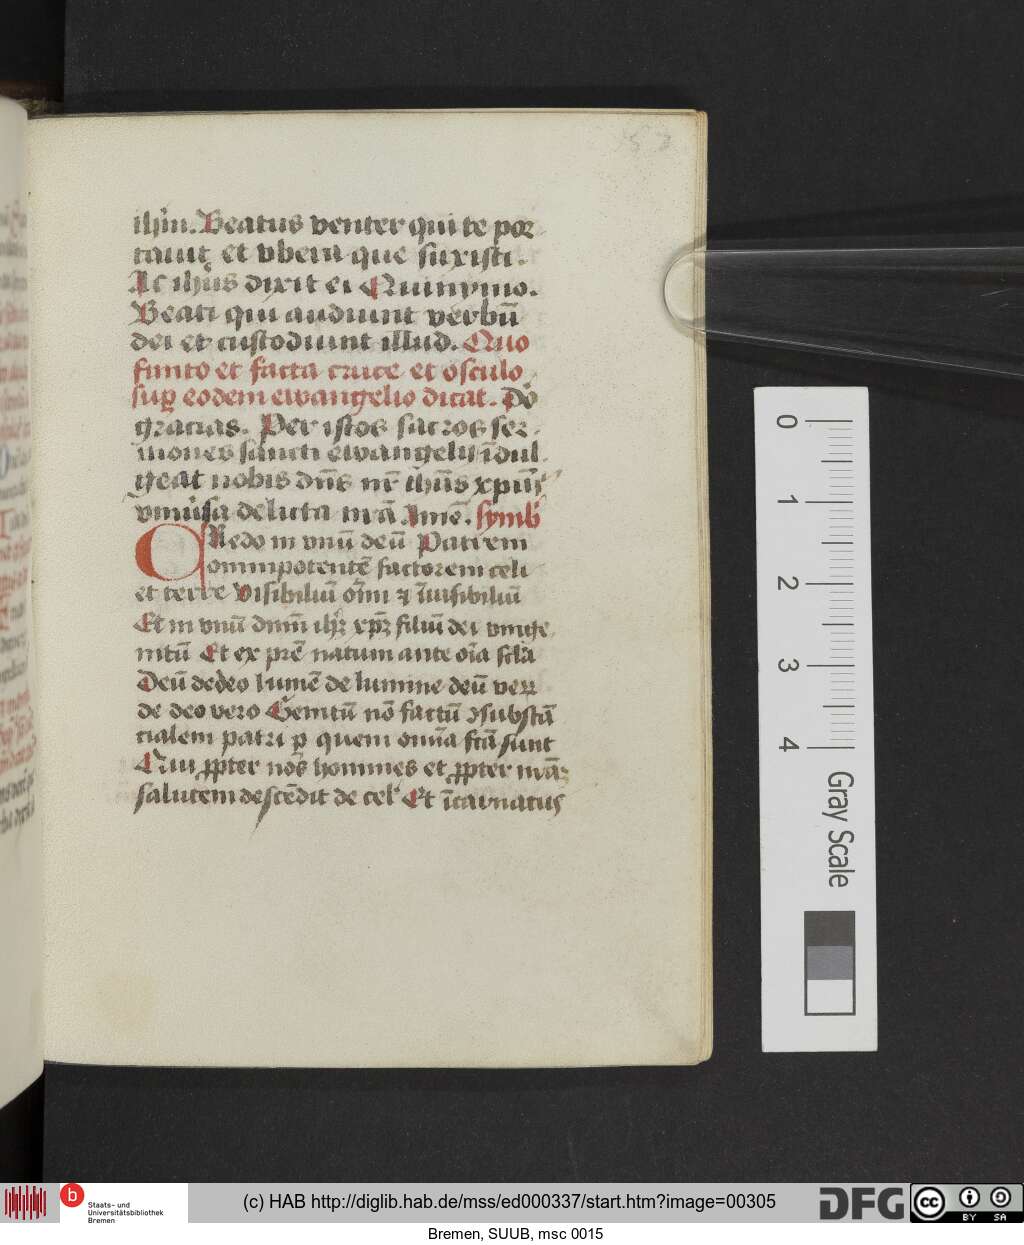 ihm. Beatus venter qui te por
tauit et vbera que suxisti.
At ihūs dixit ei Quinymo.
Beati qui audiunt verbū
dei et custodiunt illud. Quo
finito et facta cruce et osculo
suꝑ eodem ewangelio dicat. Dō
gracias. Per istos sacros ser
mones sancti ewangelij īdul
geat nobis dn̄s nr̄ ihūs xpūs
vniūsa delicta nr̄ā Amē. symb
CRedo in vnū deū Patrem
omnipotentē factorem celi
et terre Visibiliū oīm ⁊ īuisibiliū
Et in vnū dnm̄ ihꝫ xpꝫ filiū dei vnige
nitū Et ex prē natum ante oīa scl̄a
Deū de deo lumē de lumine deū veꝝ
de deo vero Genitū nō factū ꝯsubstā
cialem patri ꝑ quem omīa fcā sunt
Qui ꝓpter nos homines et ꝓpter nr̄aꝫ
salutem descēdit de cel Et īcarnatus
0
1
2
3
4
Gray Scale
b
Staats- und
Universitätsbibliothek
Bremen
(c) HAB http://diglib.hab.de/mss/ed000337/start.htm?image=00305
DFG
cc BY SA
Bremen, SUUB, msc 0015